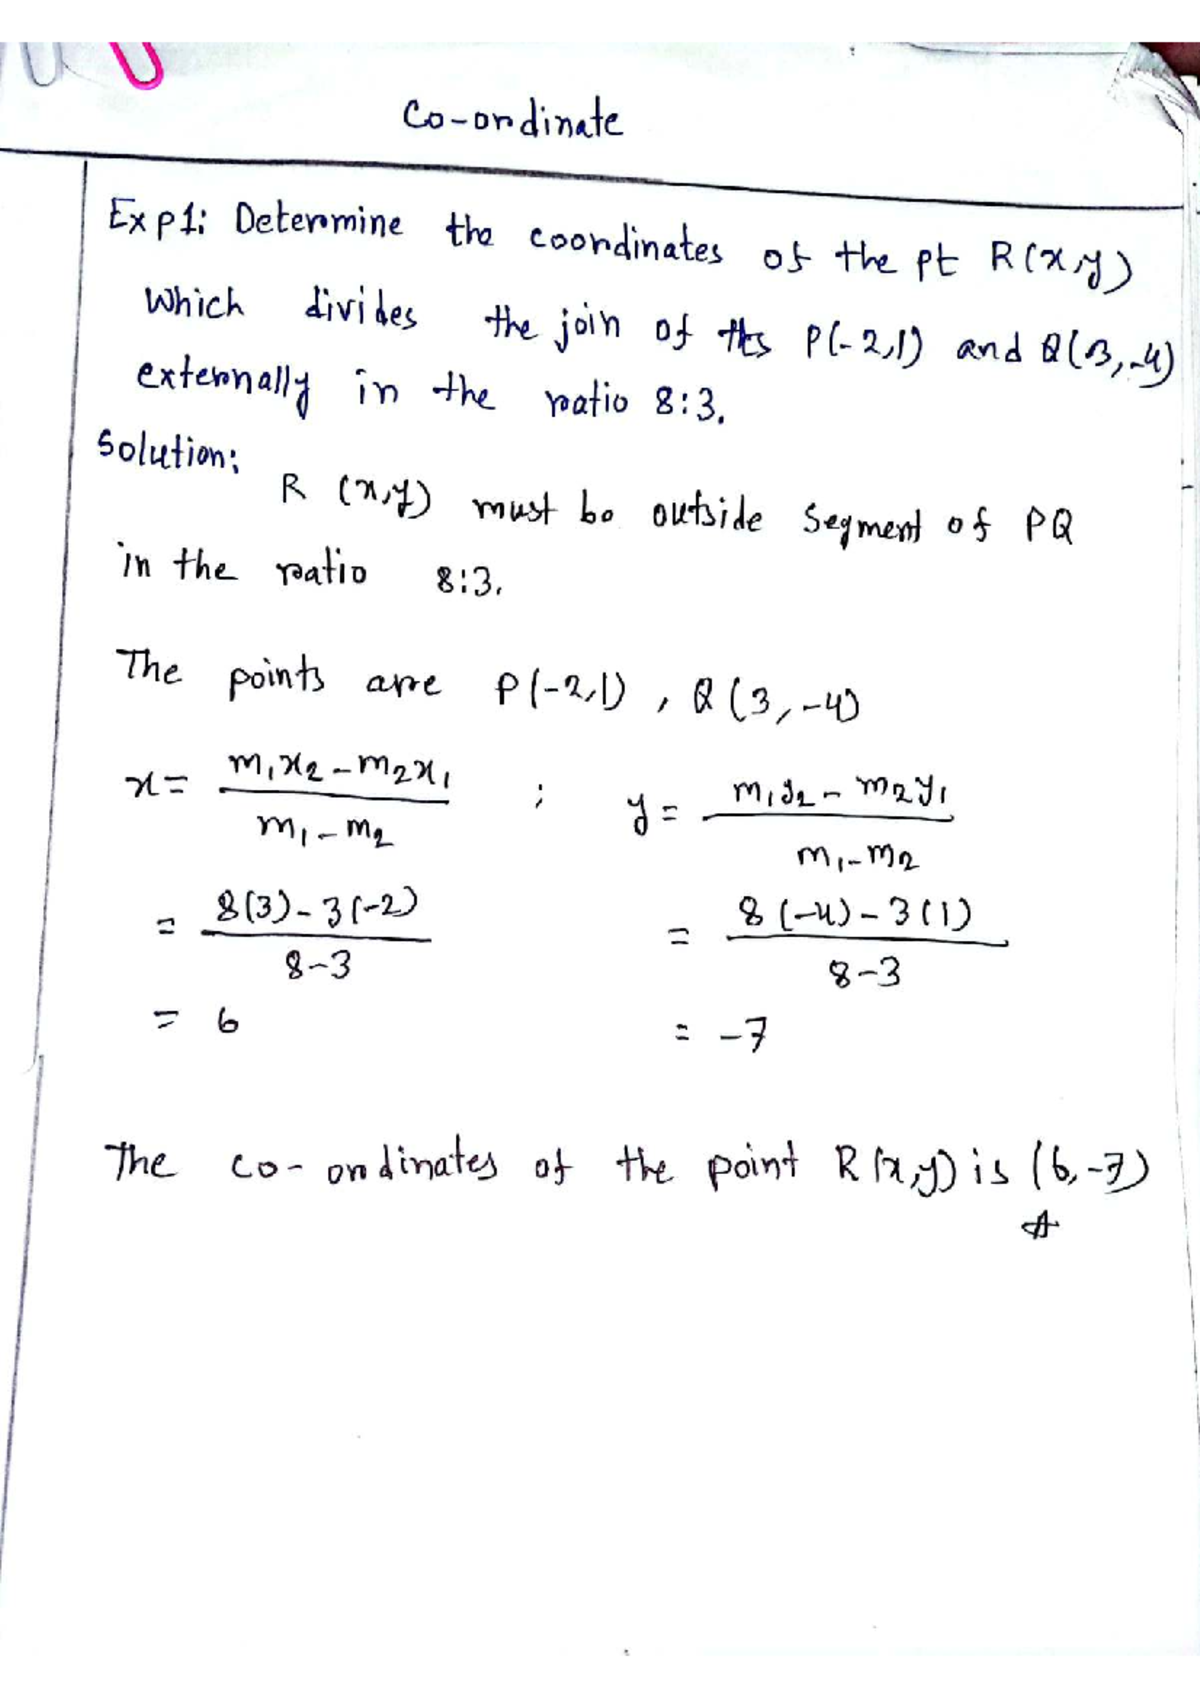 Co-ordinate
Exp1: Determine the coordinates of the pt R(x,y)
Which divides the join of the P(-2,1) and Q(3,-4)
externally in the ratio 8:3.
Solution:
R (x,y) must be outside segment of PQ
in the ratio 8:3.
The points are P(-2,1), Q(3,-4)
x = (m₁x₂ - m₂x₁)/(m₁ - m₂) ; y = (m₁y₂ - m₂y₁)/(m₁ - m₂)
= (8(3) - 3(-2))/(8-3) = (8(-4) - 3(1))/(8-3)
= 6 = -7
The co-ordinates of the point R(x,y) is (6,-7)